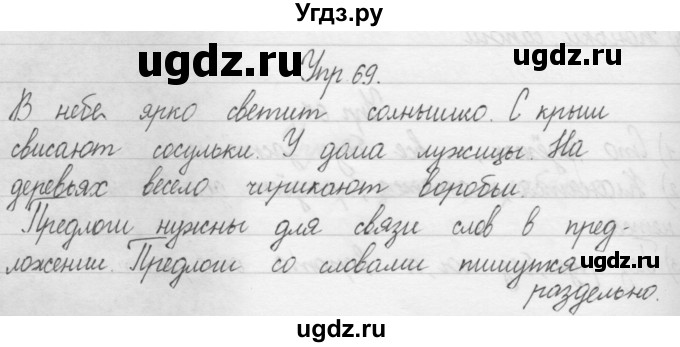 Угдз.ру
ugdz.ru ugdz.ru
Упр 69.
В небе ярко светит солнышко. С крыш
свисают сосульки. У дома лужицы. На
деревьях весело чирикают воробьи.
Предлоги нужны для связи слов в пред-
ложении. Предлоги со словами пишутся
раздельно.
ugdz.ru ugdz.ru
ugdz.ru ugdz.ru
ugdz.ru